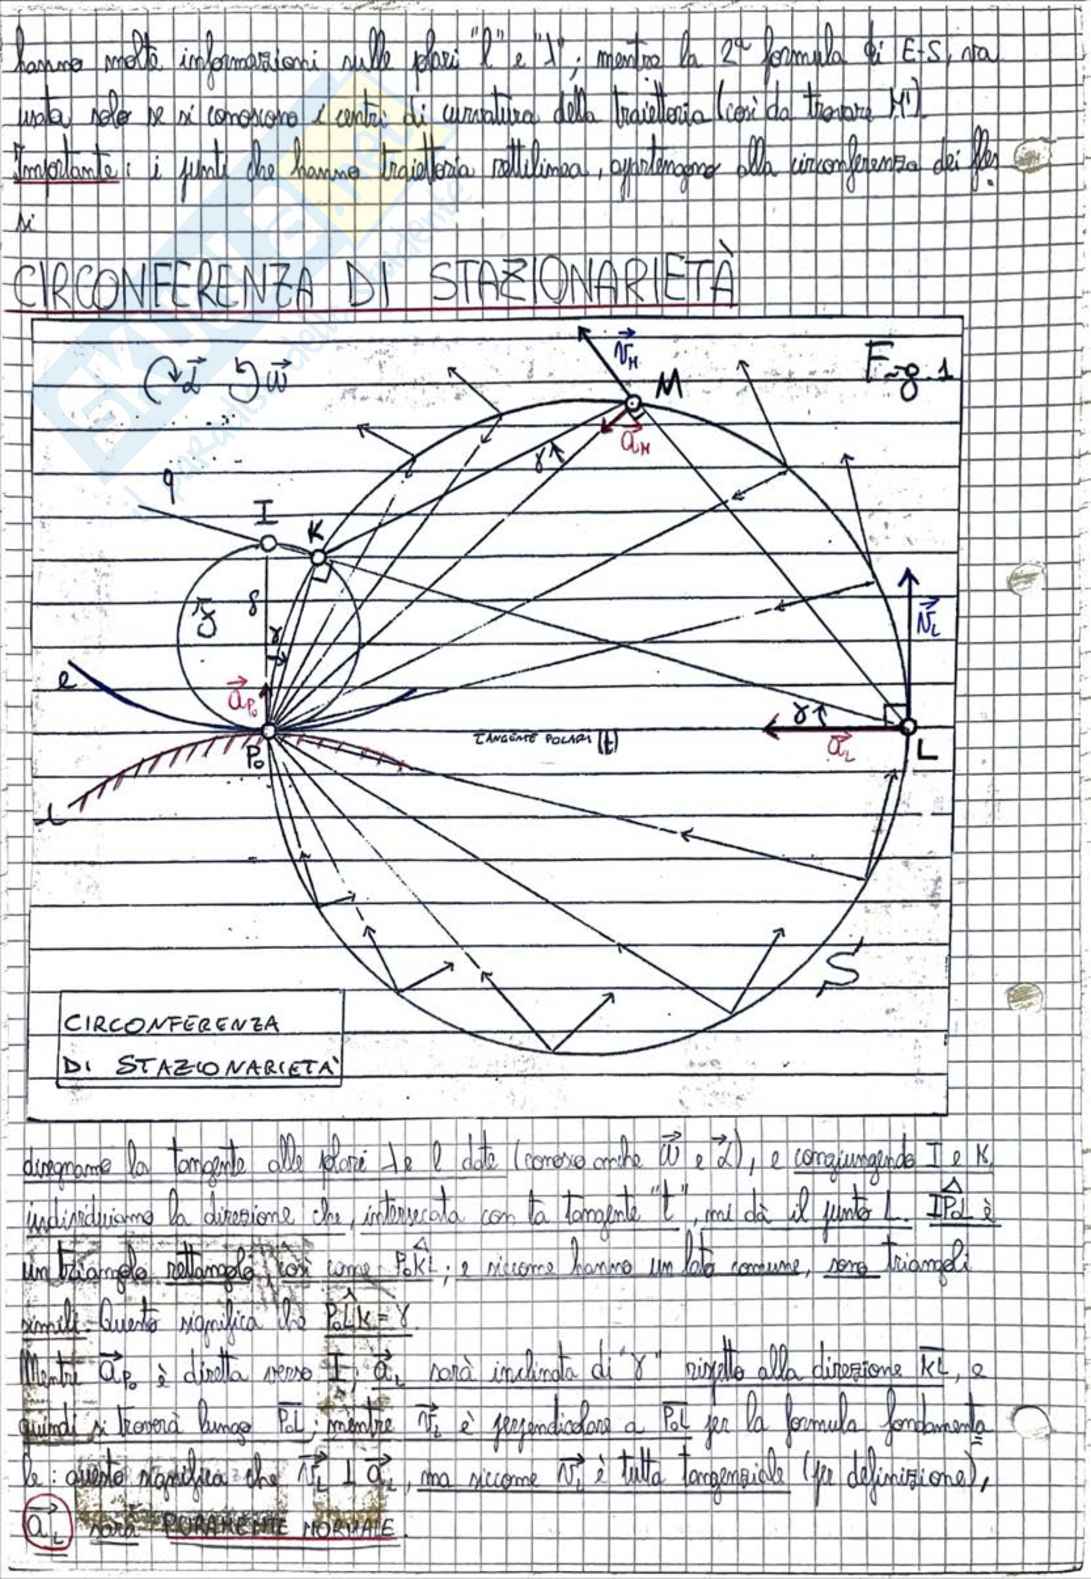 hanno molte informazioni sulle polari "l" e "λ"; mentre la 2ª formula di E-S, va
usata solo se si conoscono i centri di curvatura della traiettoria (così da trovare M').
Importante: i punti che hanno traiettoria rettilinea, appartengono alla circonferenza dei fles
si
CIRCONFERENZA DI STAZIONARIETÀ
Fig. 1
α ω
V_M
M
a_M
γ
q
I
K
δ
γ
V_L
l
a_P₀
P₀
TANGENTE POLARI (t)
γ
a_L
L
S
CIRCONFERENZA
DI STAZIONARIETA'
disegnamo la tangente alle polari λ e l date (conosco anche ω e α), e congiungendo I e K
individuiamo la direzione che, intersecata con la tangente "t", mi dà il punto L. IP₀L è
un triangolo rettangolo, così come P₀KL; e siccome hanno un lato comune, sono triangoli
simili. Questo significa che P₀LK = γ.
Mentre a_P₀ è diretta verso I, a_L sarà inclinata di "γ" rispetto alla direzione KL, e
quindi si troverà lungo P₀L; mentre V_L è perpendicolare a P₀L per la formula fondamenta
le: questo significa che V_L ⊥ a_L, ma siccome V_L è tutta tangenziale (per definizione),
a_L sarà PURAMENTE NORMALE.